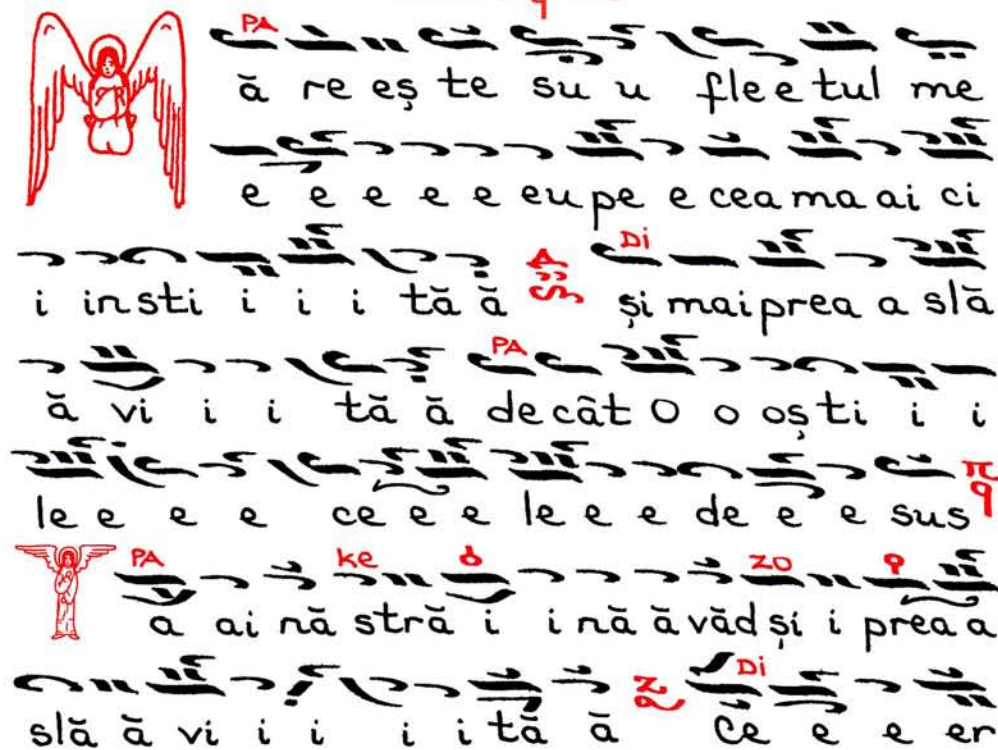 PA
M ă re eș te su u flee tul me
e e e e e eu pe e cea ma ai ci
Di
i in sti i i i tă ă și mai prea a slă
PA
ă vi i i tă ă de cât O o oș ti i i
le e e e ce e e le e e de e e sus π q
PA ke zo
T a ai nă stră i i nă ă văd și i prea a
Di
slă ă vi i i i i tă ă ce e e er